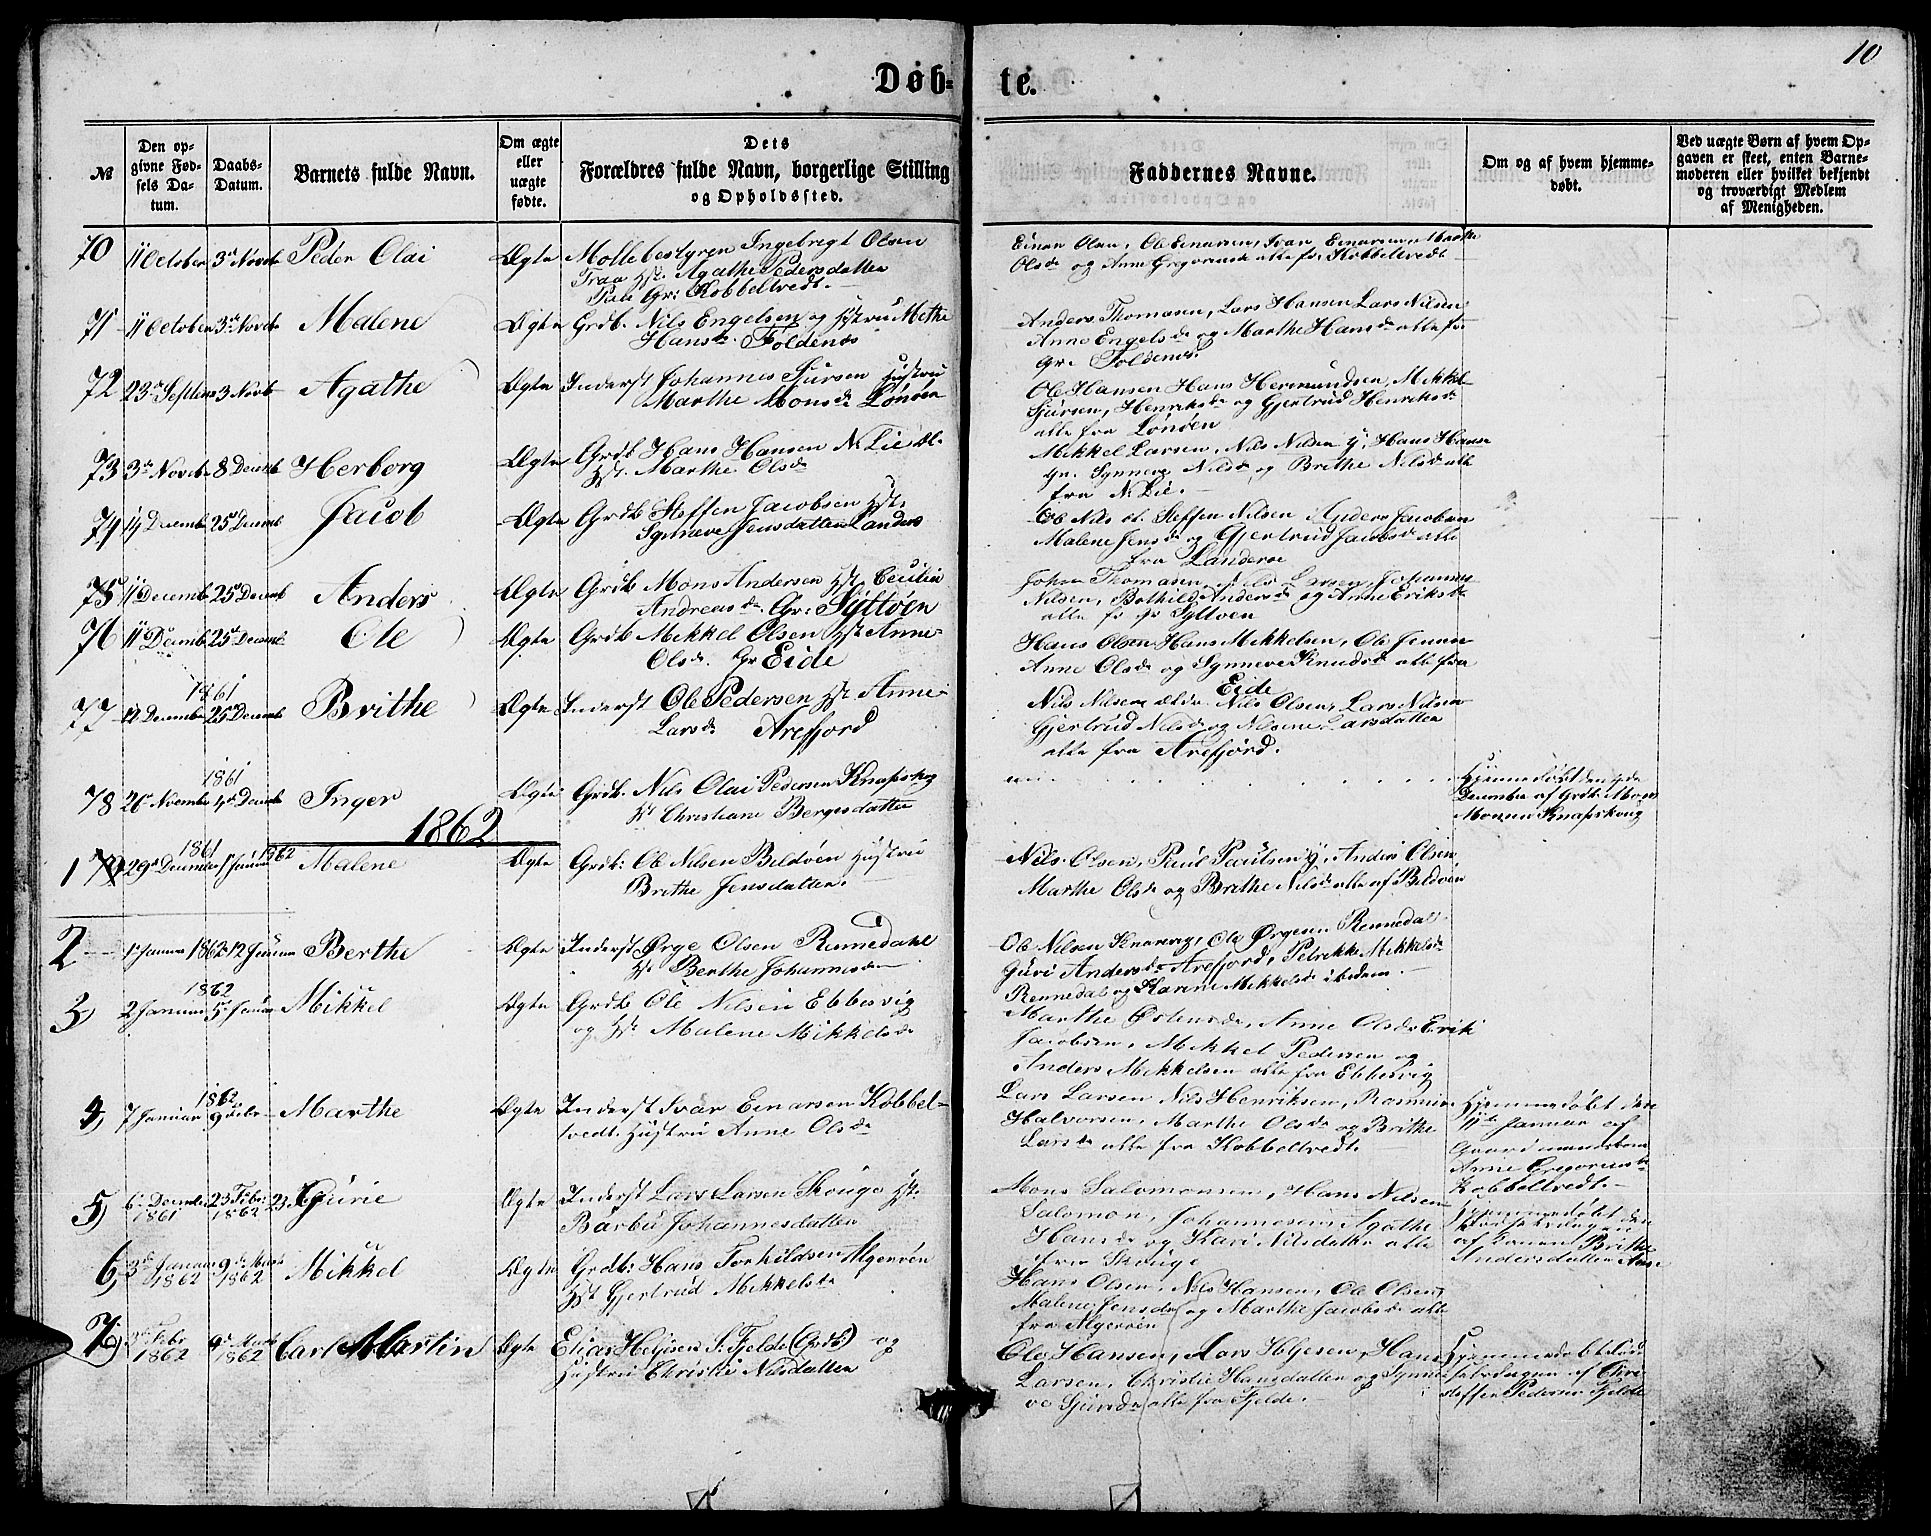 10
Døb-te.
№
Den opgivne Fødsels Datum.
Daabs-Datum.
Barnets fulde Navn.
Om ægte eller uægte fødte.
Dets Forældres fulde Navn, borgerlige Stilling og Opholdssted.
Faddernes Navne.
Om og af hvem hjemmedøbt.
Ved uægte Børn af hvem Opgaven er skeet, enten Barnemoderen eller hvilket bekjendt og troværdigt Medlem af Menigheden.
70 11 October 3 Novb Peder Olai Ægte Møllebestyrer Ingebrigt Olsen
Hst. Agathe Pedersdatter
Gr: Kobbeltvedt.
Einar Olsen, Ole Einarsen, Ivar Einarsen, Marthe
Olsdr og Anne Gregoriusdr alle fr Kobbeltvedt
71 11 October 3 Novb Malene Ægte Grdb. Nils Engelsen og Hstru Methe
Hansdr Foldenæs
Anders Thomasen, Lars Hansen Lars Nilsen
Anne Engelsdr og Marthe Hansdr alle fr
Gr: Foldenes
72 23 Septem 3 Novb Agathe Ægte Inderst Johannes Sjursen Hustru
Marthe Monsdr Lønøen
Ole Hansen Hans Hermundsen, Mikkel
Sjursen, Henriksdr og Gjertrud Henriksdr
alle fra Lønøen
73 3 Novb 8 Decemb Herborg Ægte Grdb Hans Hansen N. Lie
Hst. Marthe Olsdr
Mikkel Larsen, Nils Nilsen y, Hans Hansen
Synneve Nilsdr og Brithe Nilsdr alle
fra N. Lie.
74 14 Decemb 25 Decemb Jacob Ægte Grdb Steffen Jacobsen Hst.
Synneve Jensdatter Landers
Ole Nils Steffen Nilsen Anders Jacobsen
Malene Jensdr og Gjertrud Jacobsdr alle
fra Landeroe
75 11 Decemb 25 Decemb Anders Ægte Grdb Mons Andersen Hst. Cecilia
Andreasdr Gr: Syltøen
Johan Thomasen, Nils Larsen, Johannes
Nilsen, Bothild Andersdr og Anne Eriksdr
alle fr gr Syltøen
76 11 Decemb 25 Decemb Ole Ægte Grdb Mikkel Olsen Hst Anne
Olsdr. Gr Eide
Hans Olsen Hans Mikkelsen, Ole Jensen
Anne Olsdr og Synneve Knudsdr alle fra
Eide
77 12 December 1861 25 Decemb Brithe Ægte Inderst Ole Pedersen Hst. Anne
Larsdr Arefjord
Nils Nilsen ældr Nils Olsen, Lars Nilsen
Gjertrud Nilsdr og Nilsine Larsdatter
alle fra Arefjord.
78 26 Novembr 1861 4 Decemb Inger Ægte Grdb. Nils Olai Pedersen Knapskog
Hst Christiane Bergesdatter
Hjemmedøbt den 4de
December af Grdb. Mons
Monsen Knapskoug
1862
1 29 Decemb 1861 1 Januar 1862 Malene Ægte Grdb: Ole Nilsen Bildøen Hustru
Brithe Jensdatter.
Nils Olsen, Paul Paulsen y, Anders Olsen,
Marthe Olsdr og Brithe Nilsdr alle af Bildøen
2 1 Januar 1862 12 Januar Berthe Ægte Inderst Ørge Olsen Rennedahl
Hst Berthe Johannesdr
Ole Nilsen Knarrvig, Ole Ørgesen Rennedal
Guri Andersdr Arefjord, Petrikke Mikkelsdr
Rennedal og Karen Mikkelsdr ibidem.
3 2 Januar 1862 5 Januar Mikkel Ægte Grdb Ole Nilsen Ebbesvig
og Hst Malene Mikkelsdr
Marthe Østensdr, Anne Olsdr Erik
Jacobsen, Mikkel Pedersen og
Anders Mikkelsen alle fra Ebbesvig
4 7 Januar 1862 9 Febr Marthe Ægte Inderst Ivar Einarsen Kobbel-
tvedt Hustru Anne Olsdr
Lars Larsen Nils Henriksen, Rasmus
Halvorsen, Marthe Olsdr og Brithe
Larsdr alle fra Kobbeltvedt.
Hjemmedøbt den
11te Januar af
Gaardmandskone
Anne Gregoriusdr
Kobbeltvedt.
5 6 Decemb 1861 23 Febr 1862 Gurie Ægte Inderst Lars Larsen Skouge Hst.
Barbu Johannesdatter
Mons Salomonsen, Hans Nilsen
Salomon Johannesen Agathe
Hansdr og Kari Nilsdatter alle
fra Skouge
Hjemmedøbt den
af Konen Brithe
Andersdatter
6 3 Januar 1862 9 Marts 1862 Mikkel Ægte Grdb: Hans Torkildsen Algerøen
Hst Gjertrud Mikkelsdr
Hans Olsen, Nils Hansen, Ole Olsen
Malene Jensdr og Marthe Jacobsdr alle
fra Algerøen
7 3 Febr 1862 9 Marts 1862 Carl Martin Ægte Elias Helgesen S. Fjelde (Grdb) og
Hustru Christie Nilsdatter
Ole Hansen, Lars Helgesen, Hans
Larsen, Christie Hansdatter og Synne-
ve Sjursdr alle fra Fjelde.
Hjemmedøbt
fødselsdagen af Chri-
stoffer Pedersen Fjelde